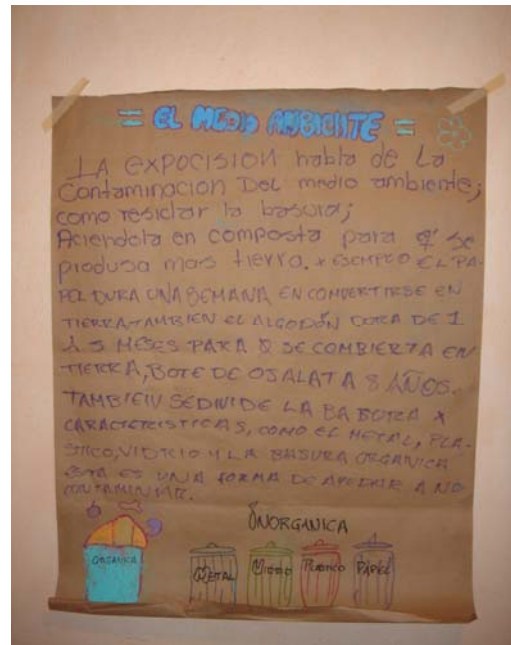 = EL MEDIO AMBIENTE =
LA EXPOCISION habla de La
Contaminacion Del medio ambiente;
como resiclar la basura;
Aciendola en composta para q' se
produsa mas tierra. x ESEMPLO EL PA-
PEL DURA UNA SEMANA EN CONVERTIRSE EN
TIERRA, TAMBIEN EL ALGODÓN DURA DE 1
A 5 MESES PARA Q SE COMBIERTA EN
TIERRA, BOTE DE OJALATA 8 AÑOS.
TAMBIEN SE DIVIDE LA BASURA x
CARACTERISTICAS, COMO EL METAL, PLA-
STICO, VIDRIO Y LA BASURA ORGANICA
ESTA ES UNA FORMA DE AYUDAR A NO
CONTAMINAR.
INORGANICA
ORGANICA
METAL VIDRIO PLASTICO PAPEL